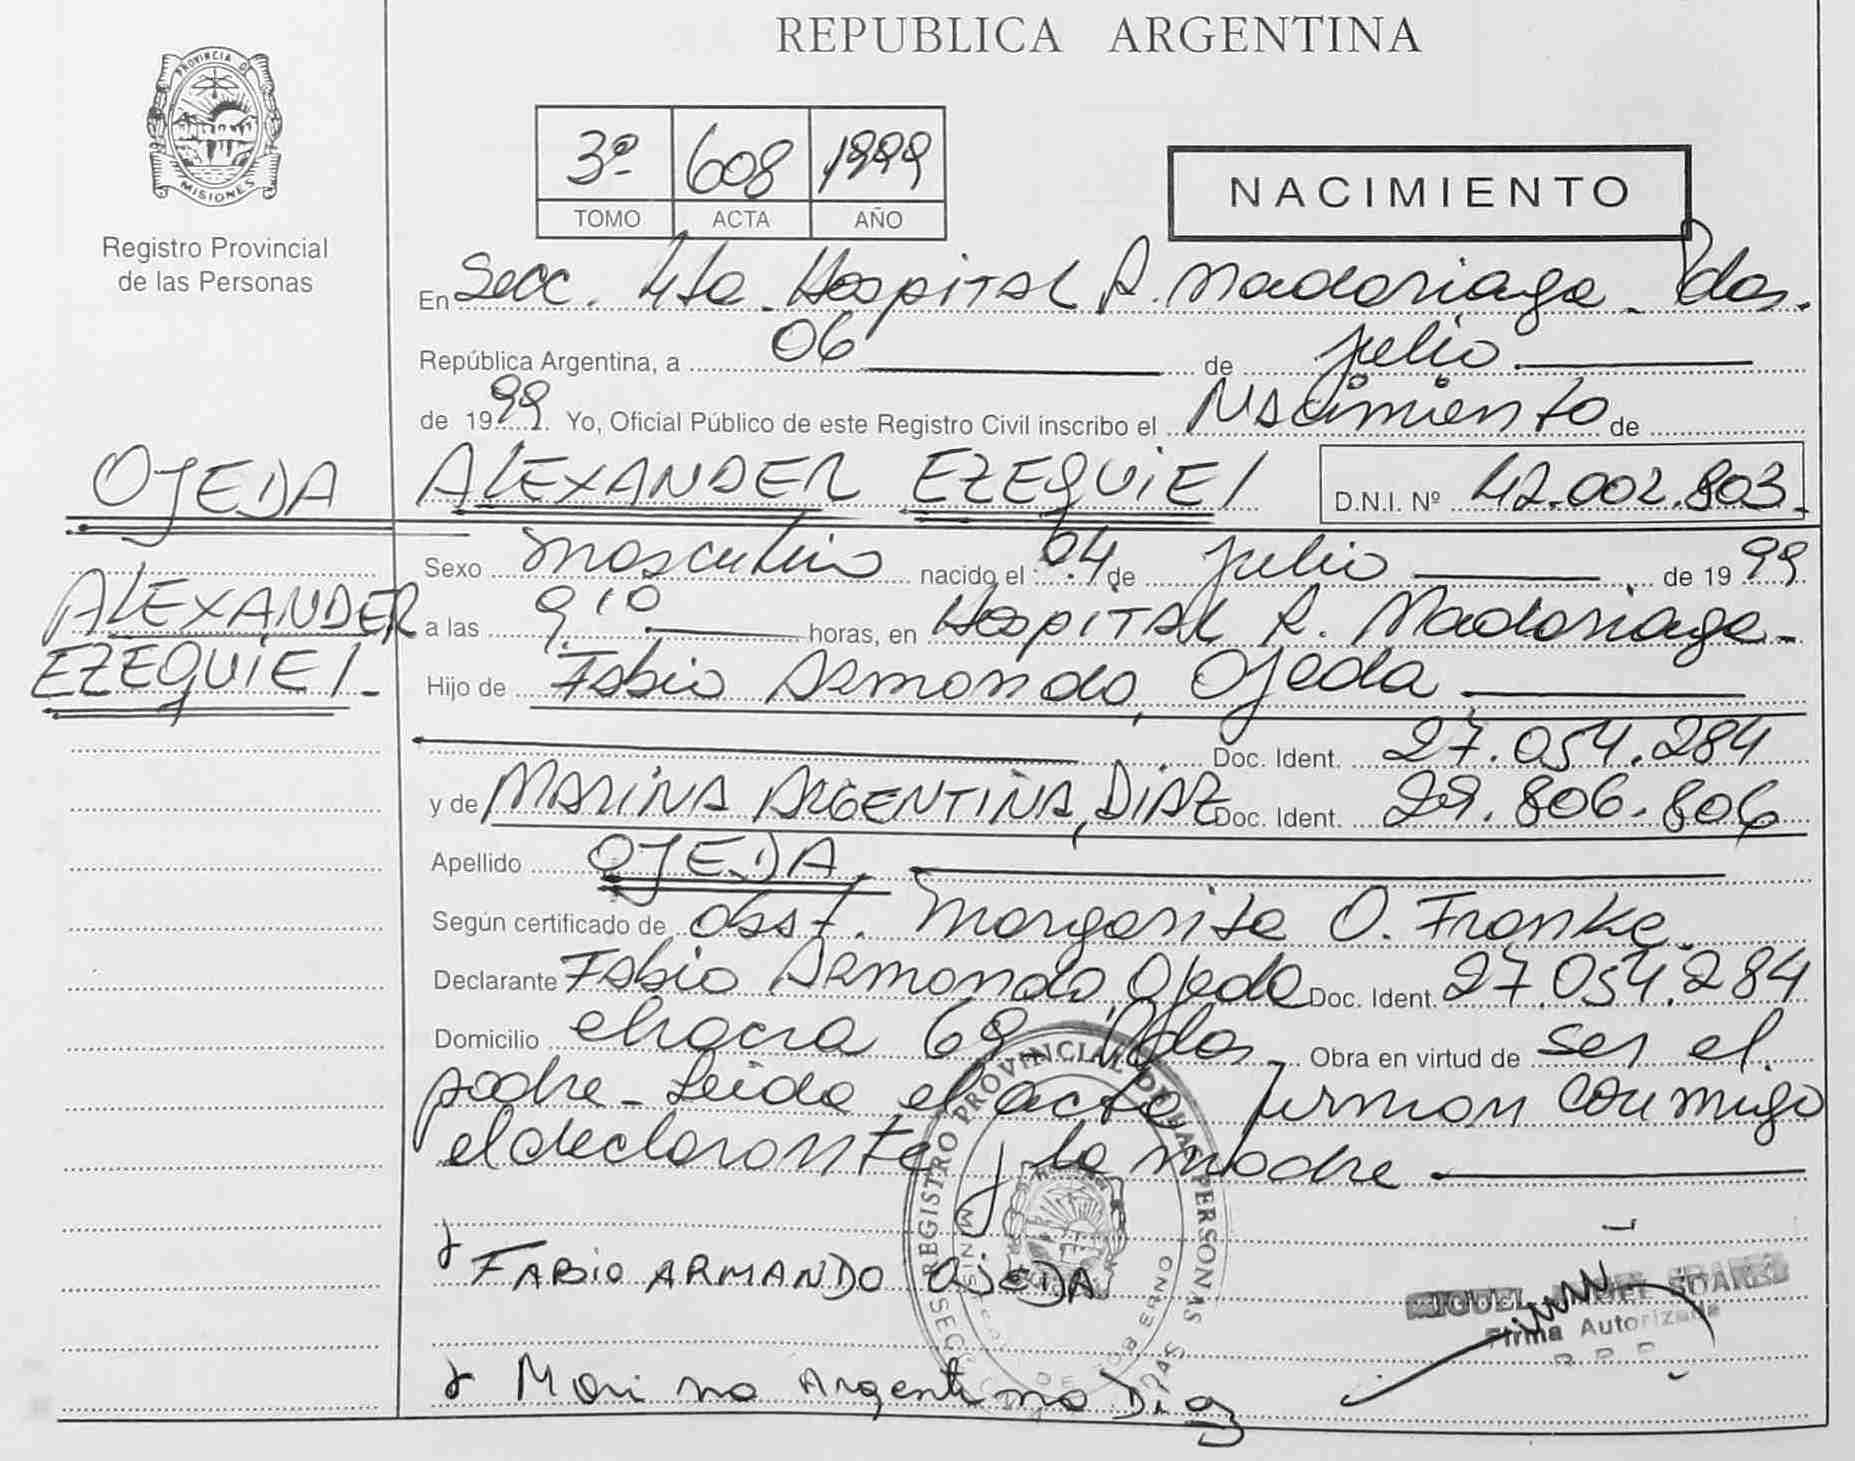 REPUBLICA ARGENTINA
PROVINCIA DE
MISIONES
Registro Provincial
de las Personas
3º 608 1999
TOMO ACTA AÑO
NACIMIENTO
En Secc. 4ta. Hospital R. Madariaga - Pdas.
República Argentina, a 06 de julio
de 1999. Yo, Oficial Público de este Registro Civil inscribo el Nacimiento de
OJEDA ALEXANDER EZEQUIEL D.N.I. Nº 42.002.803.
Sexo masculino nacido el 04 de julio de 1999
ALEXANDER
a las 9,10 horas, en Hospital R. Madariaga-
EZEQUIEL-
Hijo de Fabio Armando, Ojeda
Doc. Ident. 27.054.284
y de MARINA ARGENTINA, DIAZ Doc. Ident. 29.806.806
Apellido OJEDA.
Según certificado de obst. Margarita O. Franke.
Declarante Fabio Armando, Ojeda Doc. Ident. 27.054.284
Domicilio chacra 69 Pdas. Obra en virtud de ser el
padre - Leida el acta firman conmigo
el declarante y la madre
REGISTRO PROVINCIAL DE LAS PERSONAS
FABIO ARMANDO OJEDA
MIGUEL SUAREZ
Firma Autorizada
Marina Argentina Diaz